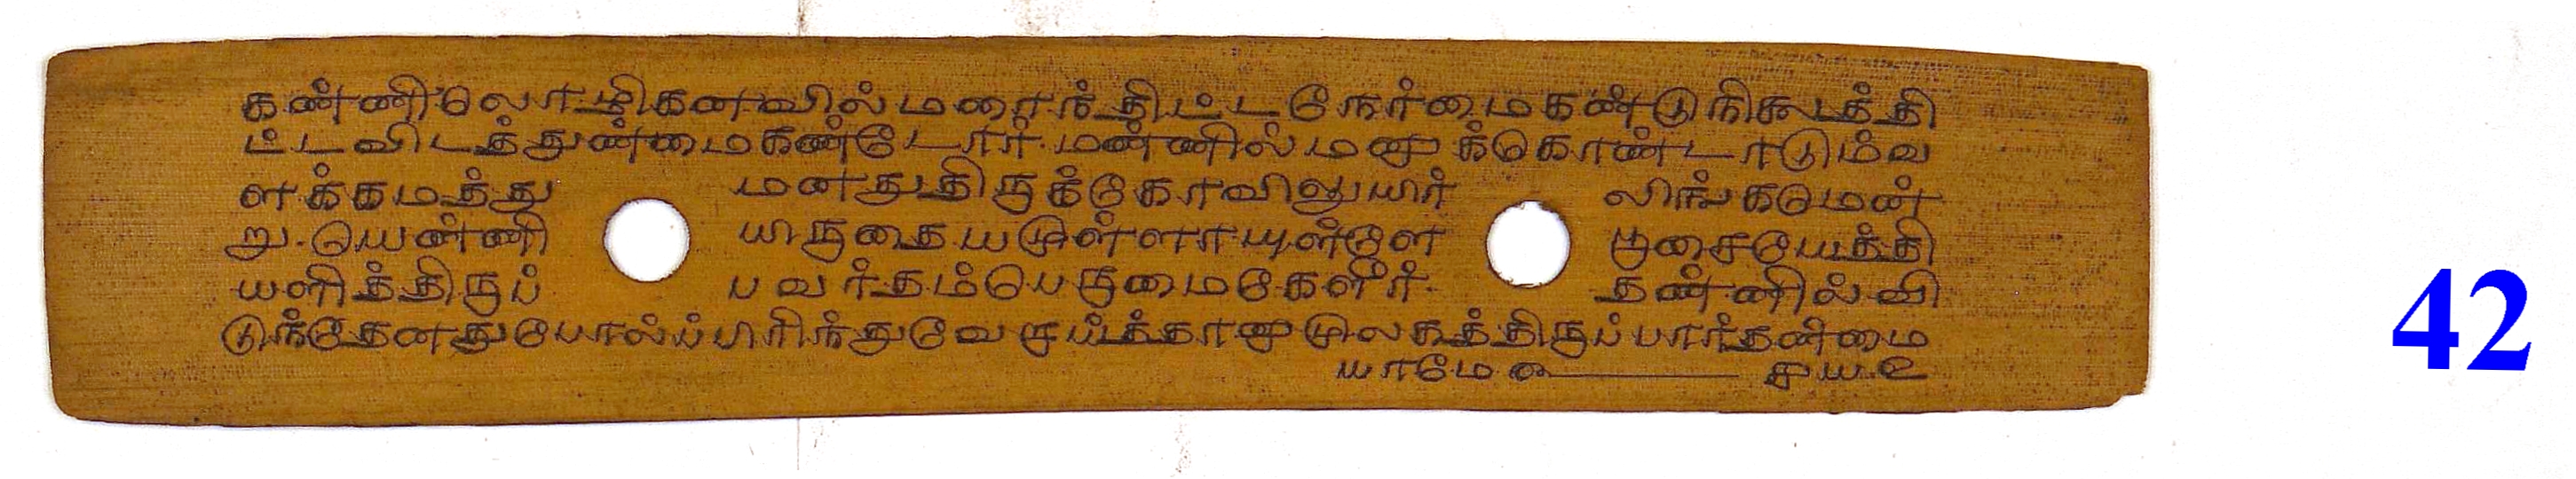 கண்ணிலொழிகனவில்மறைந்திட்டநேர்மைகண்டுநிகடத்தி
ட்டவிடத்துண்மைகண்டோர் மண்ணில்மனுக்கொண்டாடும்வ
ளக்கமத்து மனதுதிருக்கோவிலுயிர் லிங்கமென்
று யெண்ணி யிருதையமுள்ளாயுள்ளே பூசையேத்தி
யளித்திருப் பவர்தம்பெருமைகேளீர் தண்ணில்வி
டுந்தேனதுபோல்ப்பிரிந்துவேறாய்த்தானுமுலகத்திருப்பார்தன்மை
யாமே ௪௰௨
42